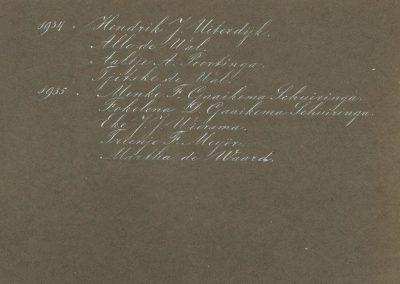 1934. Hendrik J. Uitordyk.
Alle de Wal.
Aaltje A. Poortinga.
Tjitske de Wal.
1935. Menko F. Gaaikema Schuiringa.
Fokelena D. Gaaikema Schuiringa.
Eke J. J. Wiersma.
Trienje F. Meijer.
Martha de Waard.